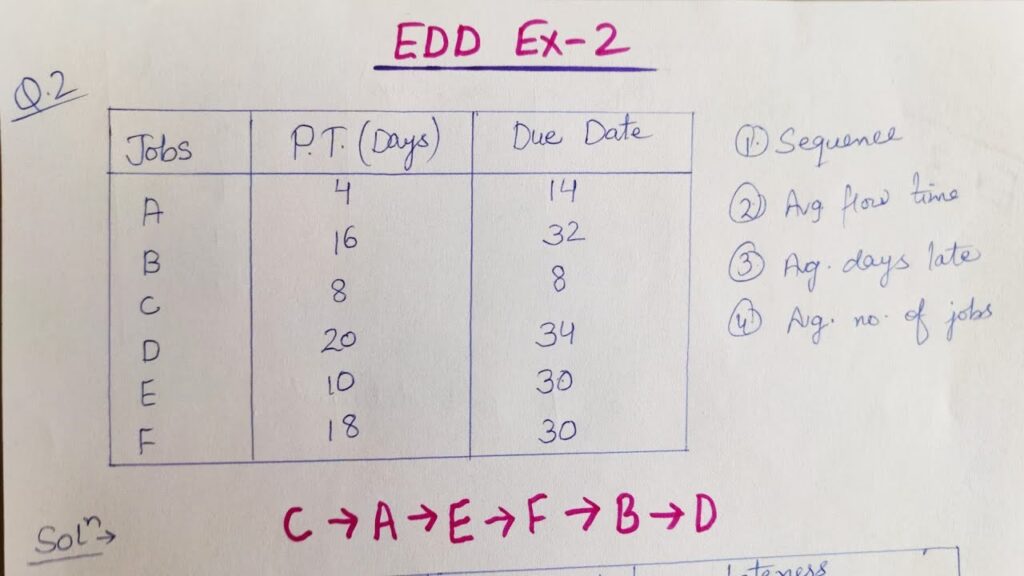 EDD Ex-2
Q.2
Jobs P.T. (Days) Due Date
A 4 14
B 16 32
C 8 8
D 20 34
E 10 30
F 18 30
① Sequence
② Avg flow time
③ Ag. days late
④ Avg. no. of jobs
Solⁿ→ C → A → E → F → B → D
lateness